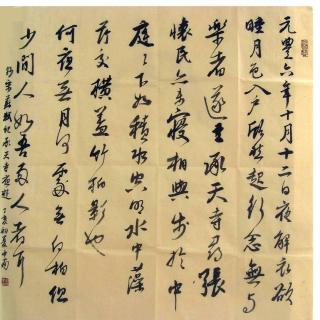 元豐六年十月十二日夜解衣欲
睡月色入户欣然起行念無与
樂者遂至承天寺尋張
懷民亦未寢相與步於中
庭々下如積水空明水中藻
荇交橫蓋竹柏影也
何夜無月何處無竹柏但
少閒人如吾兩人者耳
宋蘇軾記承天寺夜遊 丁亥初夏